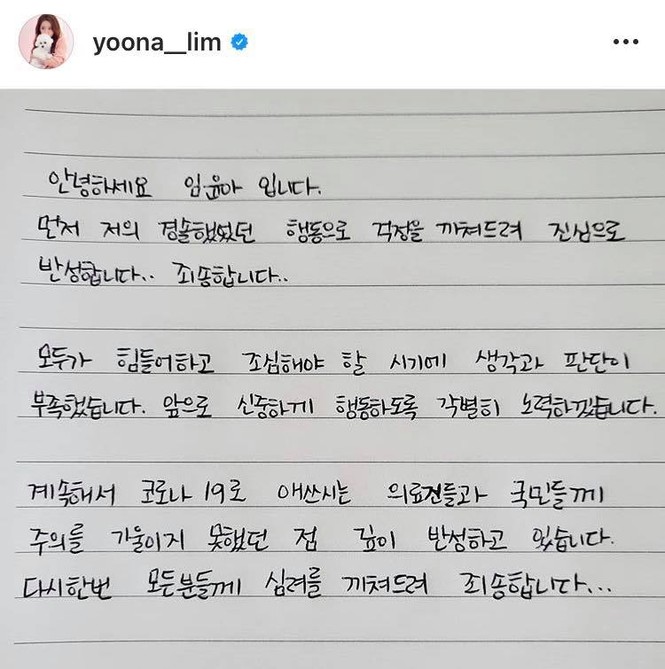 yoona__lim
안녕하세요 임윤아 입니다.
먼저 저의 경솔했었던 행동으로 걱정을 끼쳐드려 진심으로
반성합니다.. 죄송합니다..
모두가 힘들어하고 조심해야 할 시기에 생각과 판단이
부족했습니다. 앞으로 신중하게 행동하도록 각별히 노력하겠습니다.
계속해서 코로나 19로 애쓰시는 의료진들과 국민들께
주의를 기울이지 못했던 점 깊이 반성하고 있습니다.
다시한번 모든분들께 심려를 끼쳐드려 죄송합니다...